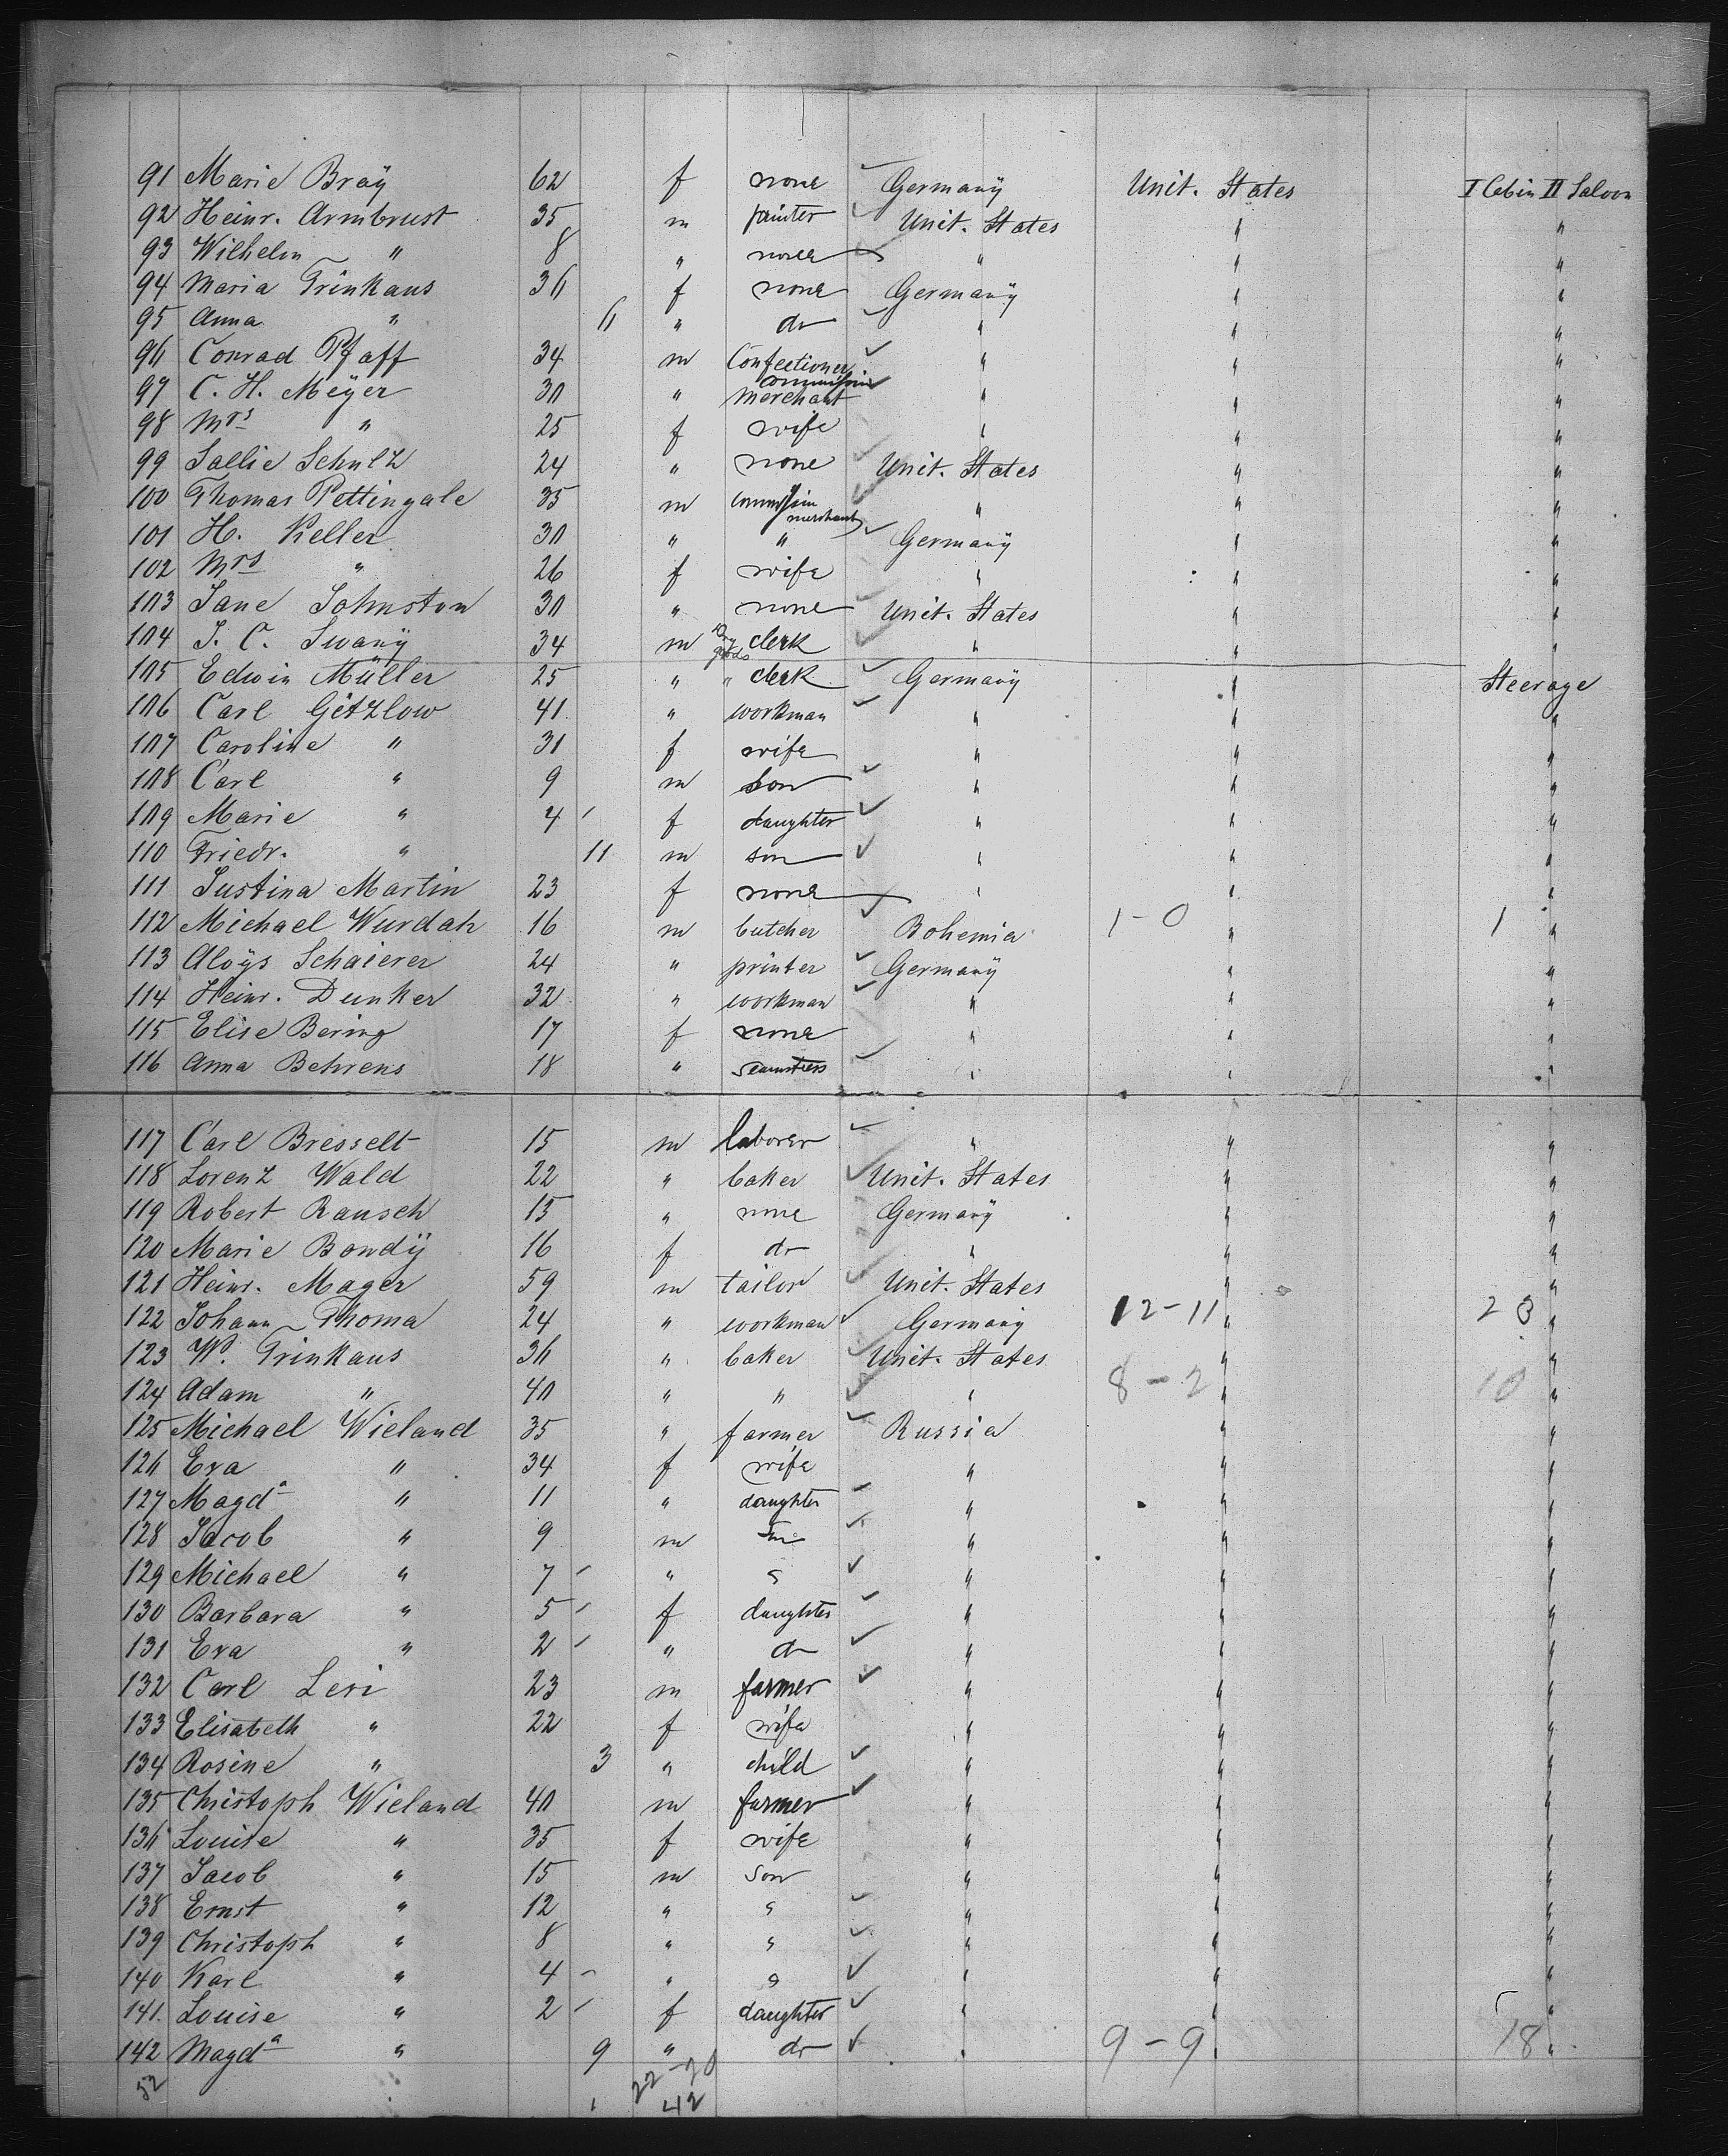 91 Marie Bräÿ 62 f none Germanÿ Unit. States I Cabin II Saloon
92 Heinr. Armbrust 35 m painter Unit. States " "
93 Wilhelm " 8 " none " " "
94 Maria Trinkaus 36 f none Germanÿ " "
95 Anna " 6 " do " " "
96 Conrad Pfaff 34 m Confectioner " " "
97 C. H. Meÿer 30 " commission merchant " " "
98 Mrs " 25 f wife " " "
99 Sallie Schulz 24 " none Unit. States " "
100 Thomas Pettingale 35 m commission merchant " " "
101 H. Keller 30 " " Germanÿ " "
102 Mrs " 26 f wife " " "
103 Jane Johnston 30 " none Unit. States " "
104 J. C. Swanÿ 34 m Dry goods clerk " " "
105 Edwin Müller 25 " " clerk Germanÿ " Steerage
106 Carl Gätzlow 41 " workman " " "
107 Caroline " 31 f wife " " "
108 Carl " 9 m son " " "
109 Marie " 4 f daughter " " "
110 Friedr. " 11 m son " " "
111 Justina Martin 23 f none " " "
112 Michael Wurdak 16 m butcher Bohemia 1-0 " 1 "
113 Aloÿs Schaierer 24 " printer Germanÿ " "
114 Heinr. Dunker 32 " workman " " "
115 Elise Bering 17 f none " " "
116 Anna Behrens 18 " seamstress " " "
117 Carl Bresselt 15 m laborer " " "
118 Lorenz Wald 22 " baker Unit. States " "
119 Robert Rausch 15 " none Germanÿ " "
120 Marie Bondÿ 16 f do " " "
121 Heinr. Mager 59 m tailor Unit. States " "
122 Johann Thoma 24 " workman Germanÿ 12-11 " 23 "
123 W. Trinkaus 36 " baker Unit. States " "
124 Adam " 40 " " " 8-2 " 10 "
125 Michael Wieland 35 " farmer Russia " "
126 Eva " 34 f wife " " "
127 Magda " 11 " daughter " " "
128 Jacob " 9 m son " " "
129 Michael " 7 " " " " "
130 Barbara " 5 f daughter " " "
131 Eva " 2 " do " " "
132 Carl Lesi 23 m farmer " " "
133 Elisabeth " 22 f wife " " "
134 Rosine " 3 " child " " "
135 Christoph Wieland 40 m farmer " " "
136 Louise " 35 f wife " " "
137 Jacob " 15 m son " " "
138 Ernst " 12 " " " " "
139 Christoph " 8 " " " " "
140 Karl " 4 " " " " "
141. Louise " 2 f daughter " " "
142 Magda " 9 " do " 9-9 " 18 "
52 22-20
1 42